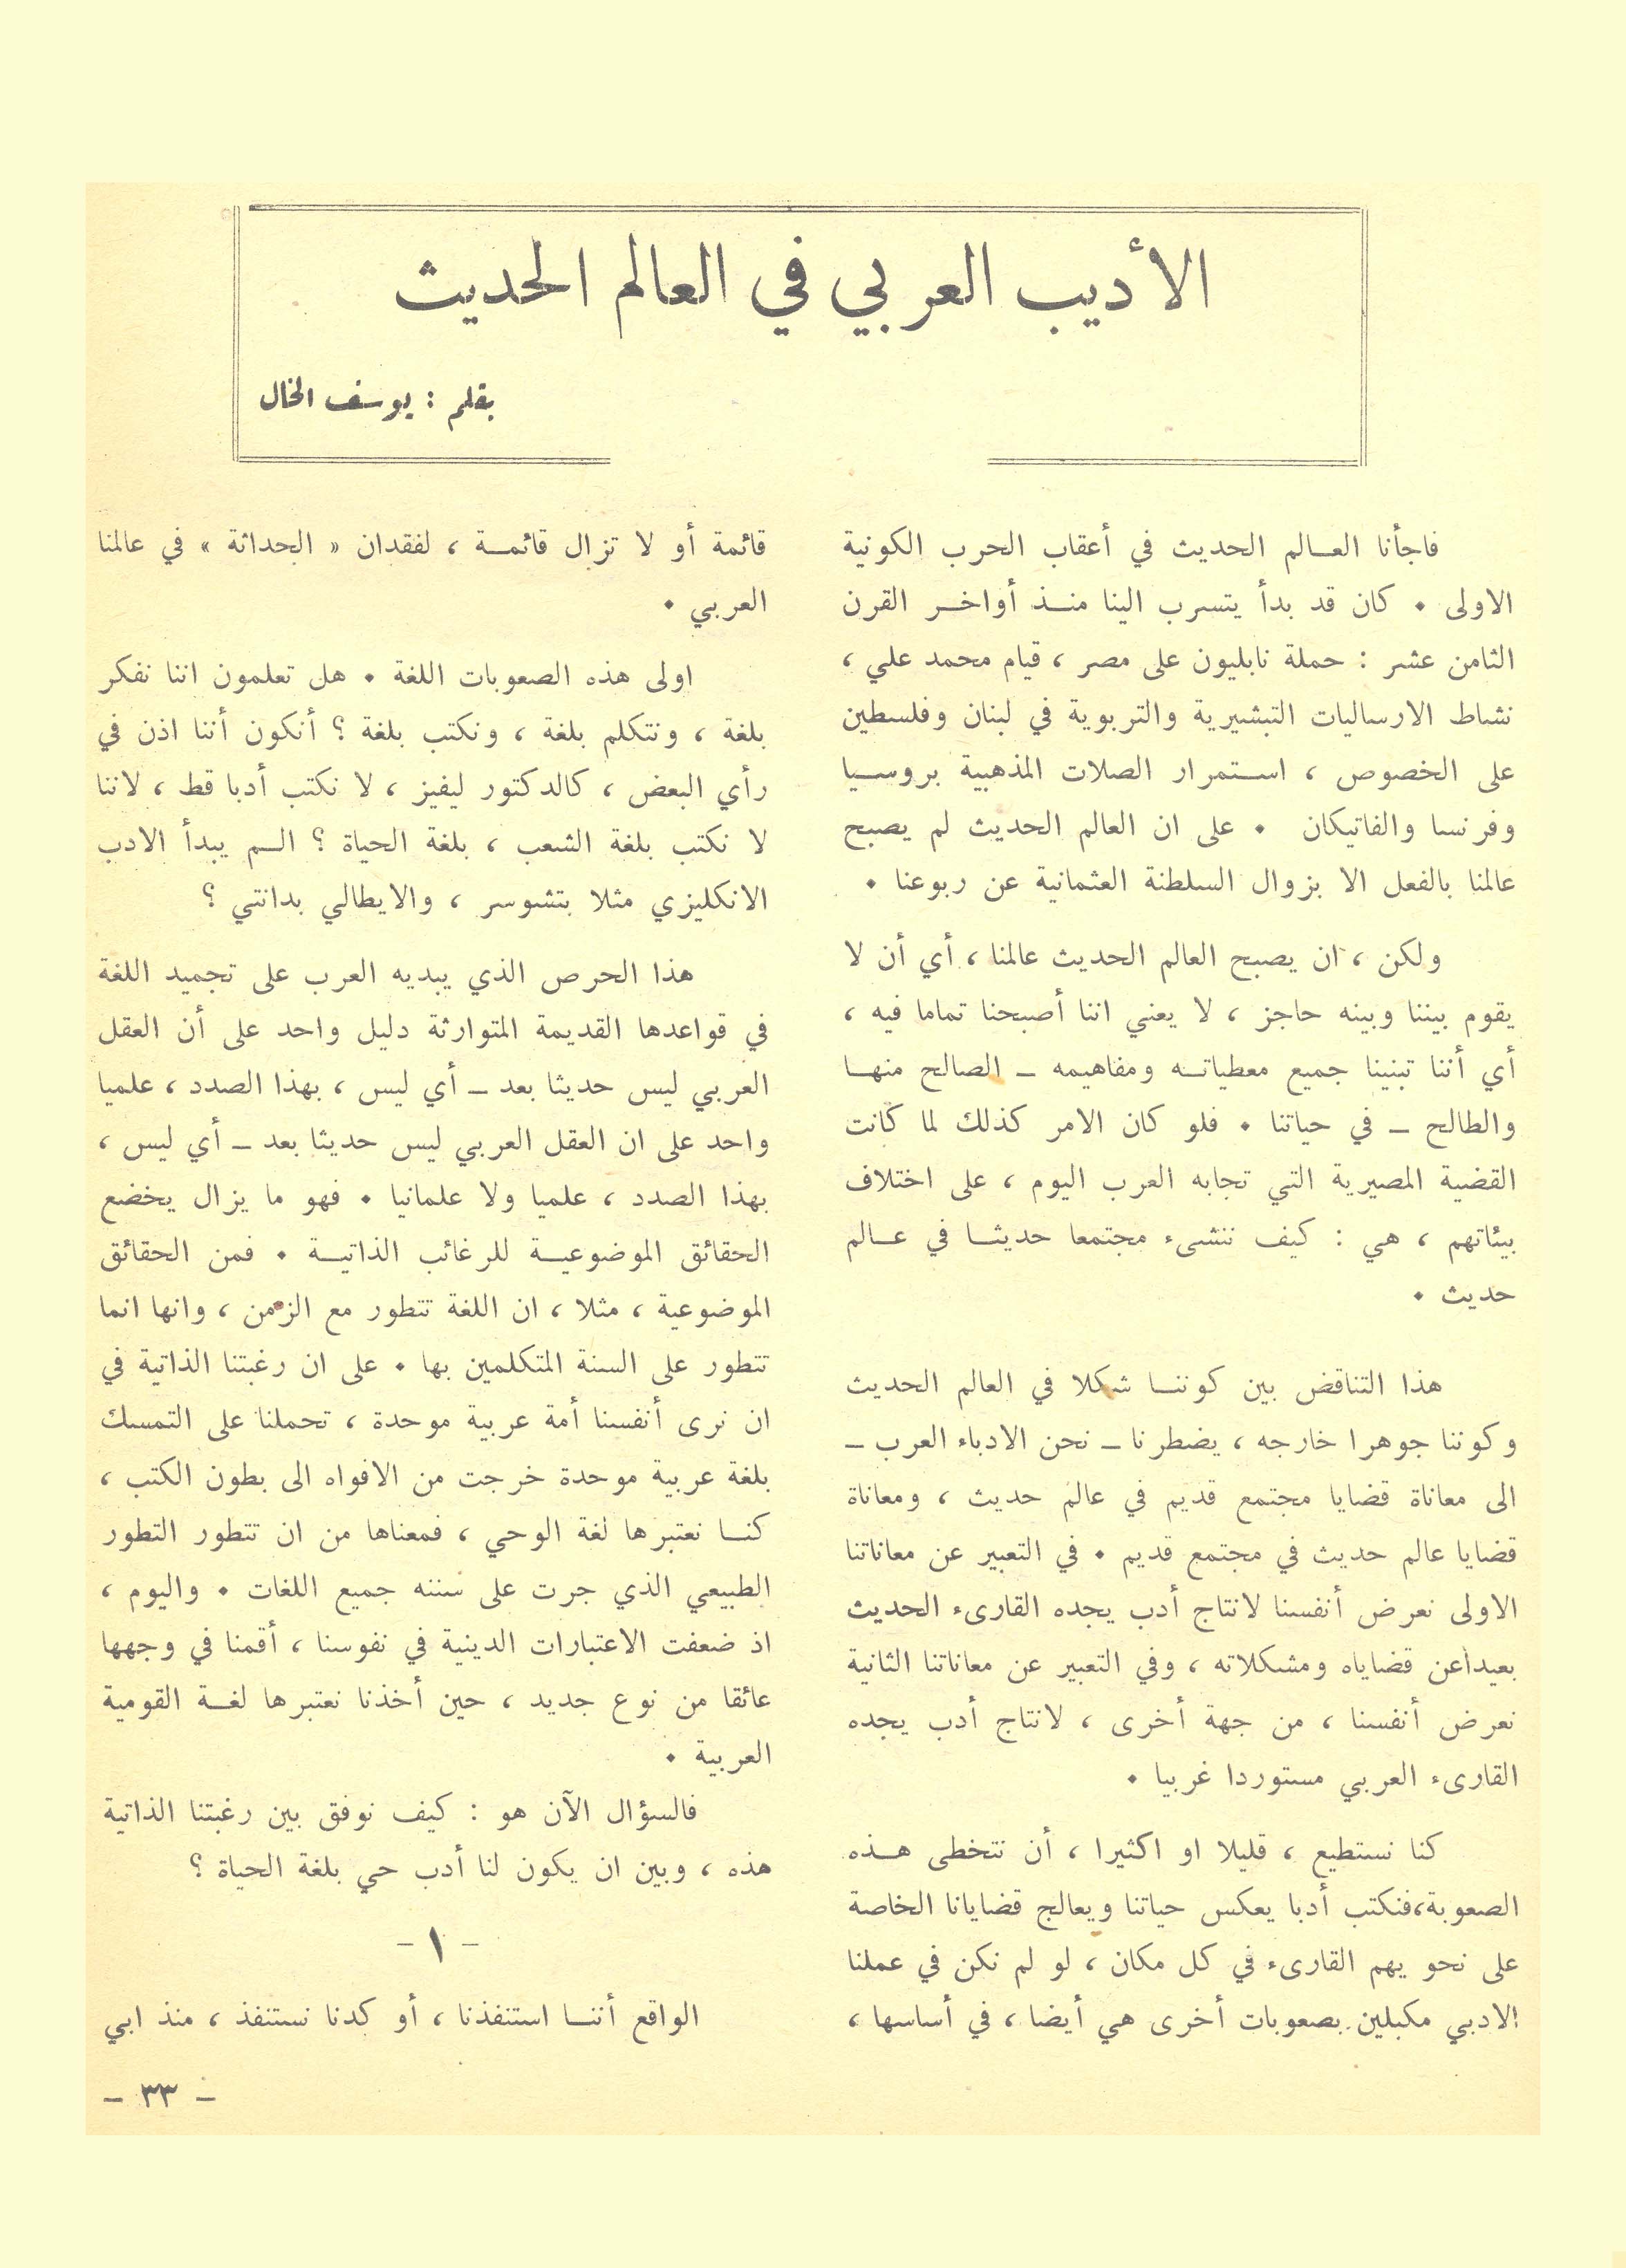 الأديب العربي في العالم الحديث
بقلم : يوسف الخال
فاجأنا العـــالم الحديث في أعقاب الحرب الكونية
الاولى . كان قد بدأ يتسرب الينا منـــذ أواخـــر القرن
الثامن عشر : حملة نابليون على مصر ، قيام محمد علي ،
نشاط الارساليات التبشيرية والتربوية في لبنان وفلسطين
على الخصوص ، استمرار الصلات المذهبية بروسيـــا
وفرنسا والفاتيكان . على ان العالم الحديث لم يصبح
عالمنا بالفعل الا بزوال السلطنة العثمانية عن ربوعنا .
ولكن ، ان يصبح العالم الحديث عالمنا ، أي أن لا
يقوم بيننا وبينه حاجز ، لا يعني اننا أصبحنا تماما فيه ،
أي أننا تبنينا جميع معطياتـــه ومفاهيمه ــ الصالح منهـــا
والطالح ــ في حياتنا . فلو كان الامر كذلك لما كانت
القضية المصيرية التي تجابه العرب اليوم ، على اختلاف
بيئاتهم ، هي : كيف ننشىء مجتمعا حديثـــا في عـــالم
حديث .
هذا التناقض بين كوننـــا شكلا في العالم الحديث
وكوننا جوهرا خارجه ، يضطرنا ــ نحن الادباء العرب ــ
الى معاناة قضايا مجتمع قديم في عالم حديث ، ومعاناة
قضايا عالم حديث في مجتمع قديم . في التعبير عن معاناتنا
الاولى نعرض أنفسنا لانتاج أدب يجده القارىء الحديث
بعيداعن قضاياه ومشكلاته ، وفي التعبير عن معاناتنا الثانية
نعرض أنفسنا ، من جهة أخرى ، لانتاج أدب يجده
القارىء العربي مستوردا غربيا .
كنا نستطيع ، قليلا او اكثيرا ، أن نتخطى هـــذه
الصعوبة،فنكتب أدبا يعكس حياتنا ويعالج قضايانا الخاصة
على نحو يهم القارىء في كل مكان ، لو لم نكن في عملنا
الادبي مكبلين بصعوبات أخرى هي أيضا ، في أساسها ،
قائمة أو لا تزال قائمـــة ، لفقدان « الحداثة » في عالمنا
العربي .
اولى هذه الصعوبات اللغة . هل تعلمون اننا نفكر
بلغة ، ونتكلم بلغة ، ونكتب بلغة ؟ أنكون أننا اذن في
رأي البعض ، كالدكتور ليفيز ، لا نكتب أدبا قط ، لاننا
لا نكتب بلغة الشعب ، بلغة الحياة ؟ الـــم يبدأ الادب
الانكليزي مثلا بتشوسر ، والايطالي بدانتي ؟
هذا الحرص الذي يبديه العرب على تجميد اللغة
في قواعدها القديمة المتوارثة دليل واحد على أن العقل
العربي ليس حديثا بعد ــ أي ليس ، بهذا الصدد ، علميا
واحد على ان العقل العربي ليس حديثا بعد ــ أي ليس ،
بهذا الصدد ، علميا ولا علمانيا . فهو ما يزال يخضع
الحقائق الموضوعيـــة للرغائب الذاتيـــة . فمن الحقائق
الموضوعية ، مثلا ، ان اللغة تتطور مع الزمن ، وانها انما
تتطور على السنة المتكلمين بها . على ان رغبتنا الذاتية في
ان نرى أنفسنا أمة عربية موحدة ، تحملنا على التمسك
بلغة عربية موحدة خرجت من الافواه الى بطون الكتب ،
كنـــا نعتبرها لغة الوحي ، فمعناها من ان تتطور التطور
الطبيعي الذي جرت على سننه جميع اللغات . واليوم ،
اذ ضعفت الاعتبارات الدينية في نفوسنا ، أقمنا في وجهها
عائقا من نوع جديد ، حين أخذنا نعتبرها لغـــة القومية
العربية .
فالسؤال الآن هو : كيف نوفق بين رغبتنا الذاتية
هذه ، وبين ان يكون لنا أدب حي بلغة الحياة ؟
- ١ -
الواقع أننـــا استنفذنا ، أو كدنا نستنفذ ، منذ ابي
- ٣٣ -